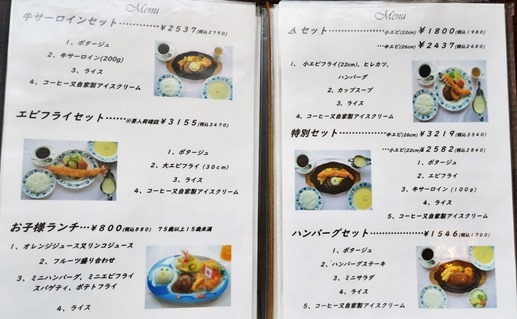 Menu
牛サーロインセット……¥2537(税込2790)
1、ポタージュ
2、牛サーロイン(200g)
3、ライス
4、コーヒー又自家製アイスクリーム
エビフライセット……※要入荷確認¥3155(税込3470)
1、ポタージュ
2、大エビフライ(30cm)
3、ライス
4、コーヒー又自家製アイスクリーム
お子様ランチ…¥800(税込880) 75歳以上15歳未満
1、オレンジジュース又リンゴジュース
2、フルーツ盛り合わせ
3、ミニハンバーグ、ミニエビフライ
スパゲティ、ポテトフライ
4、ライス
Menu
セット……小エビ(22cm)¥1800(税込1980)
中エビ(26cm)¥2437(税込2680)
1、小エビフライ(22cm)、ヒレカツ、
ハンバーグ
2、カップスープ
3、ライス
4、コーヒー又自家製アイスクリーム
特別セット……中エビ(26cm)¥3219(税込3540)
小エビ(22cm)¥2582(税込2840)
1、ポタージュ
2、エビフライ
3、牛サーロイン(100g)
4、ライス
5、コーヒー又自家製アイスクリーム
ハンバーグセット……¥1546(税込1700)
1、ポタージュ
2、ハンバーグステーキ
3、ミニサラダ
4、ライス
5、コーヒー又自家製アイスクリーム